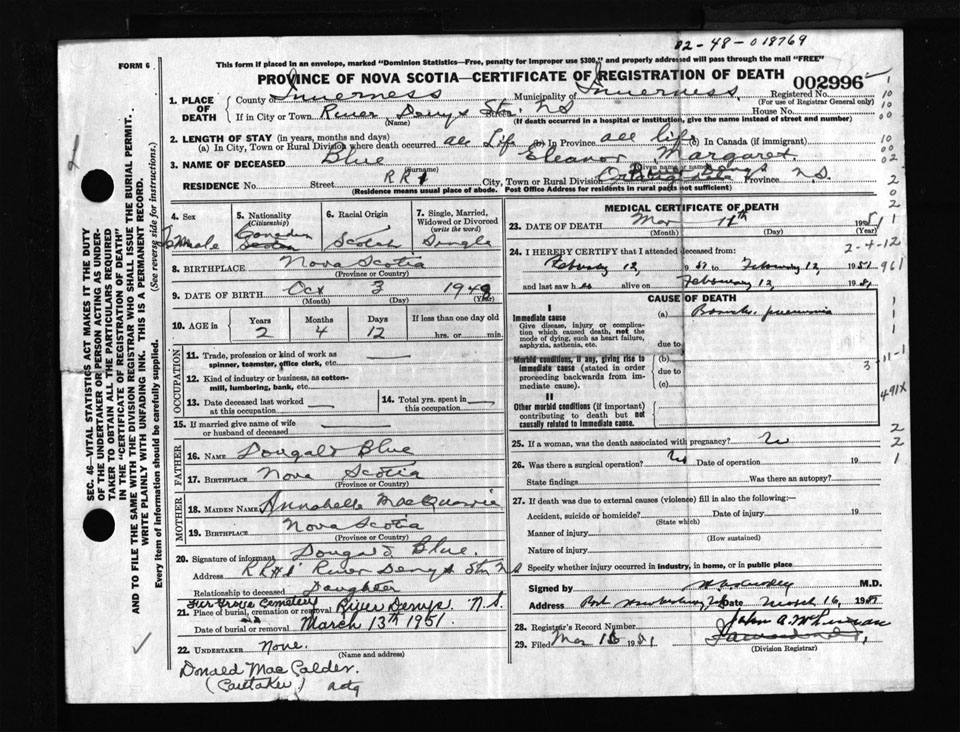 82-48-018769
FORM 6
This form if placed in an envelope, marked "Dominion Statistics—Free, penalty for improper use $300," and properly addressed will pass through the mail "FREE"
PROVINCE OF NOVA SCOTIA—CERTIFICATE OF REGISTRATION OF DEATH 002996
1. PLACE OF DEATH County of Inverness Municipality of Inverness Registered No.
(For use of Registrar General only)
If in City or Town River Denys Stn. NS Street House No.
(Name) (If death occurred in a hospital or institution, give the name instead of street and number)
2. LENGTH OF STAY (in years, months and days)
(a) In City, Town or Rural Division where death occurred all Life (b) In Province all life (c) In Canada (if immigrant)
3. NAME OF DECEASED Blue Eleanor Margaret
(Surname)
RESIDENCE No. Street RR1 City, Town or Rural Division River Denys Province N.S.
(Residence means usual place of abode. Post Office Address for residents in rural parts not sufficient)
4. Sex Female
5. Nationality (Citizenship) Canadian
6. Racial Origin Scotch
7. Single, Married, Widowed or Divorced (write the word) Single
8. BIRTHPLACE Nova Scotia
(Province or Country)
9. DATE OF BIRTH Oct 3 1948
(Month) (Day) (Year)
10. AGE in Years Months Days If less than one day old
2 4 12 hrs. or min.
OCCUPATION
11. Trade, profession or kind of work as spinner, teamster, office clerk, etc.
12. Kind of industry or business, as cotton-mill, lumbering, bank, etc.
13. Date deceased last worked at this occupation
14. Total yrs. spent in this occupation
15. If married give name of wife or husband of deceased
FATHER
16. NAME Dougald Blue
17. BIRTHPLACE Nova Scotia
(Province or Country)
MOTHER
18. MAIDEN NAME Annabelle MacQuarrie
19. BIRTHPLACE Nova Scotia
(Province or Country)
20. Signature of informant Dougald Blue.
Address RR#1 River Denys Stn NS
Relationship to deceased Daughter
21. Place of burial, cremation or removal Fir Grove Cemetery River Denys N.S.
Date of burial or removal March 13th 1951
22. UNDERTAKER None.
(Name and address)
Donald MacCalder.
(Caretaker) actg
MEDICAL CERTIFICATE OF DEATH
23. DATE OF DEATH Mar 11th 1951
(Month) (Day) (Year)
24. I HEREBY CERTIFY that I attended deceased from:
February 12, 1951 to February 12, 1951
and last saw her alive on February 12 1951
CAUSE OF DEATH
I
Immediate cause (a) Broncho pneumonia
Give disease, injury or complication which caused death, not the mode of dying, such as heart failure, asphyxia, asthenia, etc.
due to
Morbid conditions, if any, giving rise to immediate cause (stated in order proceeding backwards from immediate cause).
(b)
due to
(c)
II
Other morbid conditions (if important) contributing to death but not causally related to immediate cause.
25. If a woman, was the death associated with pregnancy? No
26. Was there a surgical operation? No Date of operation 19
State findings Was there an autopsy?
27. If death was due to external causes (violence) fill in also the following:—
Accident, suicide or homicide? Date of injury 19
(State which)
Manner of injury
(How sustained)
Nature of injury
Specify whether injury occurred in industry, in home, or in public place
Signed by M.D.
Address Port Hawkesbury NS Date March 16, 1951
28. Registrar's Record Number
29. Filed Mar 16 1951
(Division Registrar)
2-4-12
961
3
11-1
491X
SEC. 46—VITAL STATISTICS ACT MAKES IT THE DUTY OF THE UNDERTAKER OR PERSON ACTING AS UNDERTAKER TO OBTAIN ALL THE PARTICULARS REQUIRED IN THE "CERTIFICATE OF REGISTRATION OF DEATH" AND TO FILE THE SAME WITH THE DIVISION REGISTRAR WHO SHALL ISSUE THE BURIAL PERMIT.
WRITE PLAINLY WITH UNFADING INK. THIS IS A PERMANENT RECORD.
Every item of information should be carefully supplied. (See reverse side for instructions.)